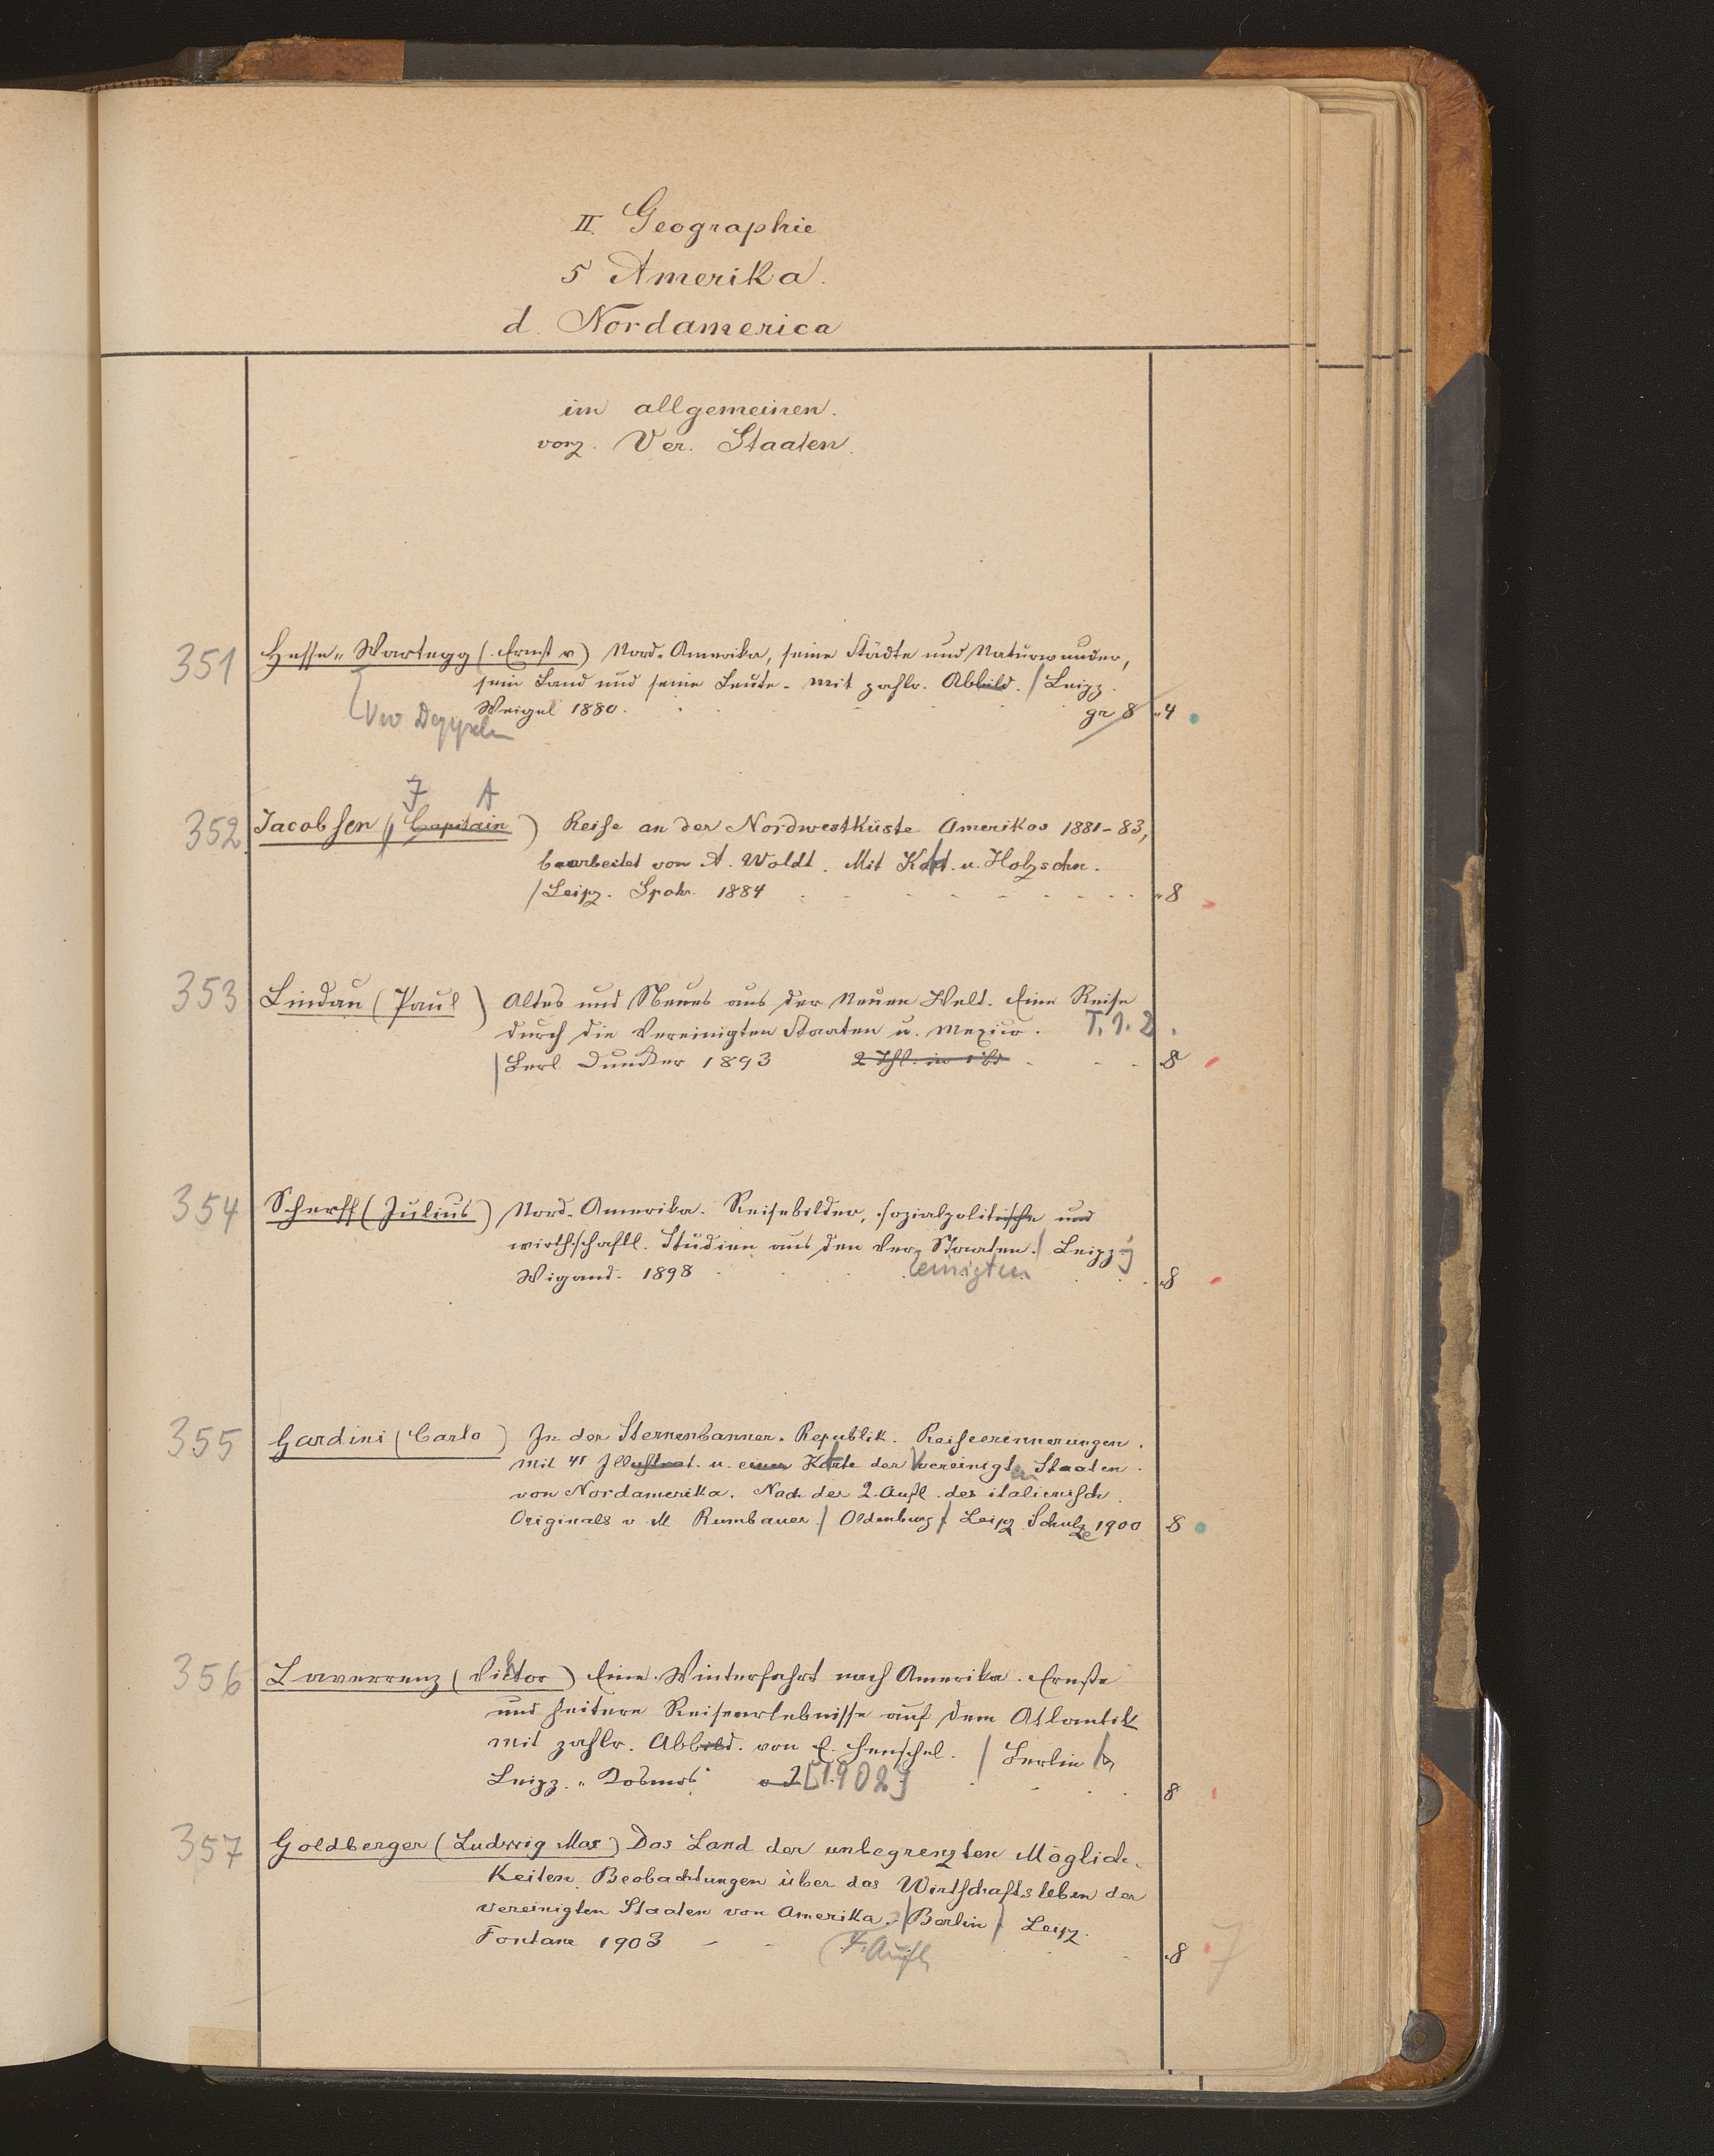 II. Geographie
5 Amerika.
d. Nordamerica
im allgemeinen.
vorz. Ver. Staaten.
351 Hesse-Wartegg (Ernst v) Nord-Amerika, seine Städte und Naturwunder,
sein Land und seine Leute. Mit zahlr. Abbild. / Leipz.
Weigel 1880. gr 8 4
352 Jacobsen (Capitain) J A Reise an der Nordwestküste Amerikas 1881-83,
bearbeitet von A. Woldt. Mit Kart. u. Holzschn.
/ Leipz. Spohr 1884 8
353 Lindau (Paul) Altes und Neues aus der Neuen Welt. Eine Reise
durch die Vereinigten Staaten u. Mexico. T. 1. 2.
/ Berl. Duncker 1893 2 Thl. in 1 Bd 8
354 Scherff (Julius) Nord-Amerika. Reisebilder, sozialpolitische und
wirthschaftl. Studien aus den Ver. Staaten. / Leipz.
Wigand. 1898 einigten 8
355 Gardini (Carlo) In der Sternenbanner-Republik. Reiseerinnerungen.
Mit 41 Illustrat. u. einer Karte der Vereinigten Staaten
von Nordamerika. Nach der 2. Aufl. des italienisch.
Originals v. M. Rumbauer / Oldenburg / Leipz. Schulze 1900 8
356 Laverrenz (Victor) Eine Winterfahrt nach Amerika. Ernste
und heitere Reiseerlebnisse auf dem Atlantik
mit zahlr. Abbild. von C. Henschel. / Berlin /
Leipz. "Kosmos" o J [1902] 8
357 Goldberger (Ludwig Max) Das Land der unbegrenzten Möglich-
keiten. Beobachtungen über das Wirtschaftsleben der
vereinigten Staaten von Amerika. / Berlin / Leipz.
Fontane 1903 7. Aufl. 8 7